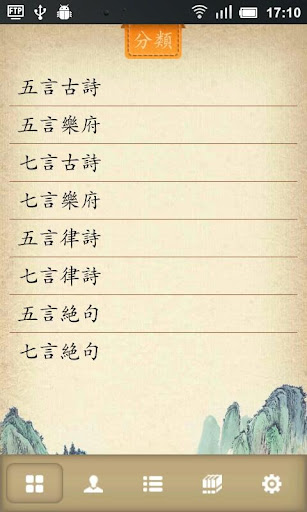 FTP 17:10
分類
五言古詩
五言樂府
七言古詩
七言樂府
五言律詩
七言律詩
五言絕句
七言絕句